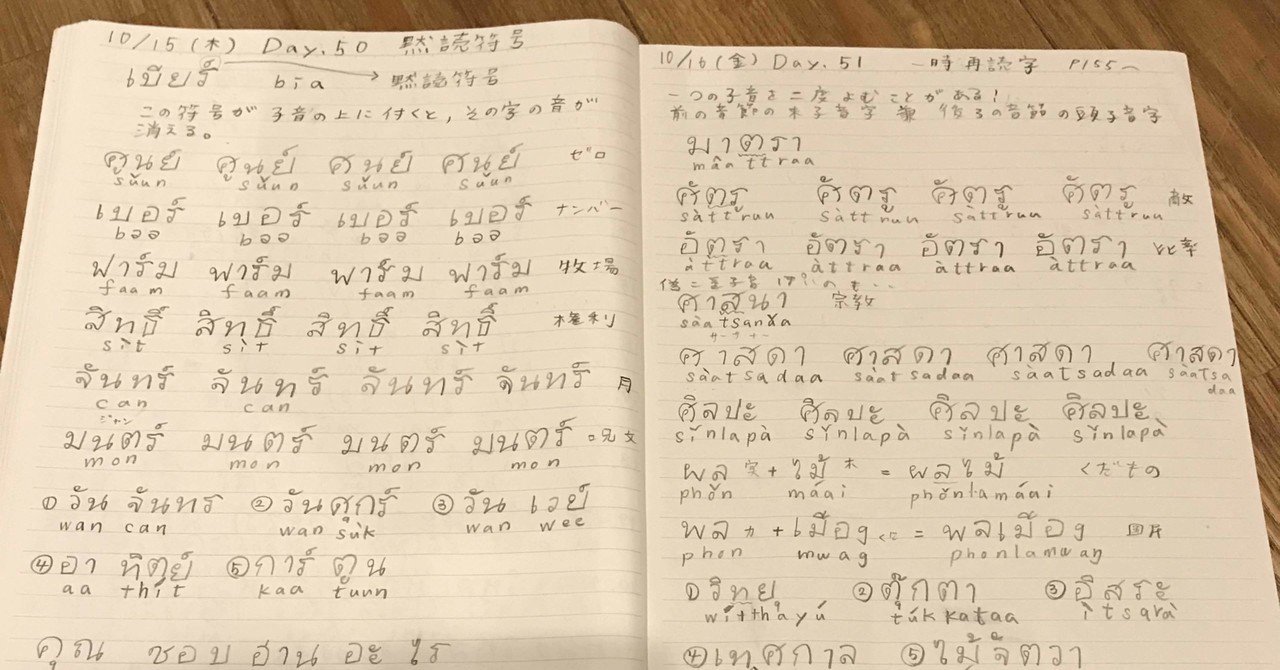 10/15(木) Day.50 黙読符号
เบียร์ bia → 黙読符号
この符号が子音の上に付くと,その字の音が
消える。
ศูนย์ ศูนย์ ศูนย์ ศูนย์ ゼロ
sǔun sǔun sǔun sǔun
เบอร์ เบอร์ เบอร์ เบอร์ ナンバー
bəə bəə bəə bəə
ฟาร์ม ฟาร์ม ฟาร์ม ฟาร์ม 牧場
faam faam faam faam
สิทธิ์ สิทธิ์ สิทธิ์ สิทธิ์ 権利
sìt sìt sìt sìt
จันทร์ จันทร์ จันทร์ จันทร์ 月
can can
ジャン
มนตร์ มนตร์ มนตร์ มนตร์ 呪文
mon mon mon mon
① วัน จันทร ② วันศุกร์ ③ วัน เวย์
wan can wan sùk wan wee
④ อา ทิตย์ ⑤ การ์ ตูน
aa thít kaa tuun
คุณ ชอบ อ่าน อะ ไร
10/16(金) Day.51 一時再読字 P155~
一つの子音を二度よむことがある!
前の音節の末子音字 兼 後ろの音節の頭子音字
มาตรา
mâattraa
ศัตรู ศัตรู ศัตรู ศัตรู 敵
sàttruu sàttruu sàttruu sàttruu
อัตรา อัตรา อัตรา อัตรา 比率
àttraa àttraa àttraa àttraa
ศาสนา 宗教
sàatsanǎa
サーサナー
ศาสดา ศาสดา ศาสดา ศาสดา
sàatsadaa sàatsadaa sàatsadaa sàatsa
daa
ศิลปะ ศิลปะ ศิลปะ ศิลปะ
sǐnlapà sǐnlapà sǐnlapà sǐnlapà
ผล 実 + ไม้ 木 = ผลไม้ くだもの
phǒn máai phǒnlamáai
พล 力 + เมือง = พลเมือง 国民
phon mwag phonlamwaŋ
① วิทยุ ② ตุ๊กตา ③ อิสระ
witthayú túkkataa ìtsarà
④ เทศกาล ⑤ ไม้จัตวา